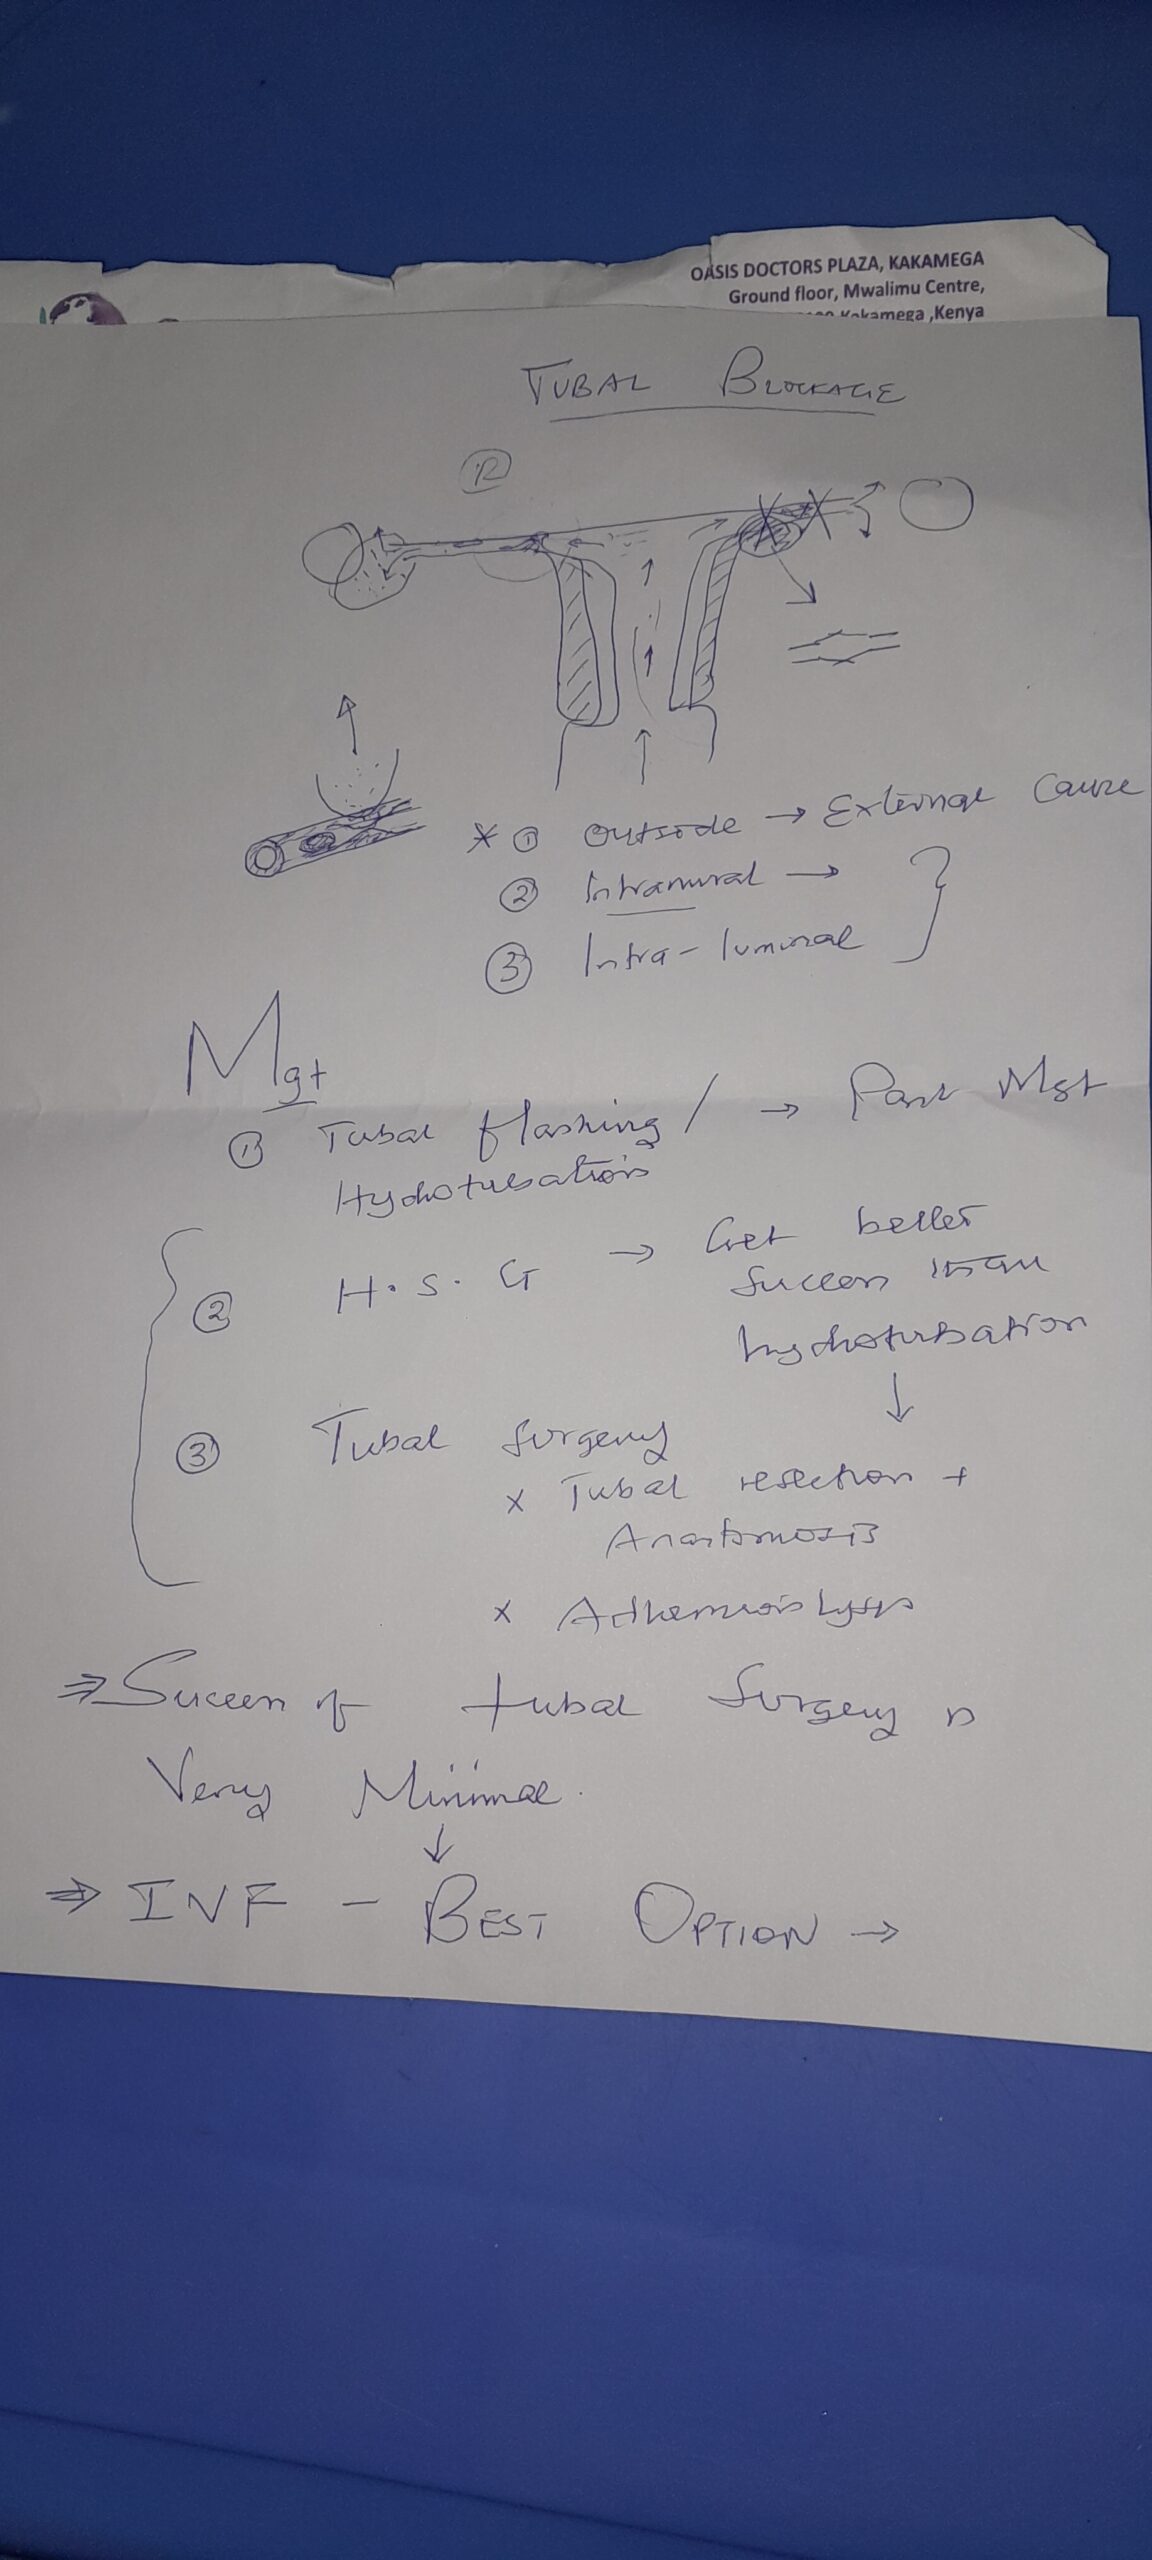 OASIS DOCTORS PLAZA, KAKAMEGA
Ground floor, Mwalimu Centre,
Kakamega ,Kenya
TUBAL BLOCKAGE
R
* ① Outside → External Cause
② Intramural →
③ Intra-luminal
Mgt
① Tubal flashing / → Past Mgt
Hydrotubation
② H.S.G → Get better
Success than
hydrotubation
↓
③ Tubal Surgery
x Tubal resection +
Anastomosis
x
⇒ Success of tubal Surgery is
Very Minimal.
↓
⇒ INF - BEST OPTION →